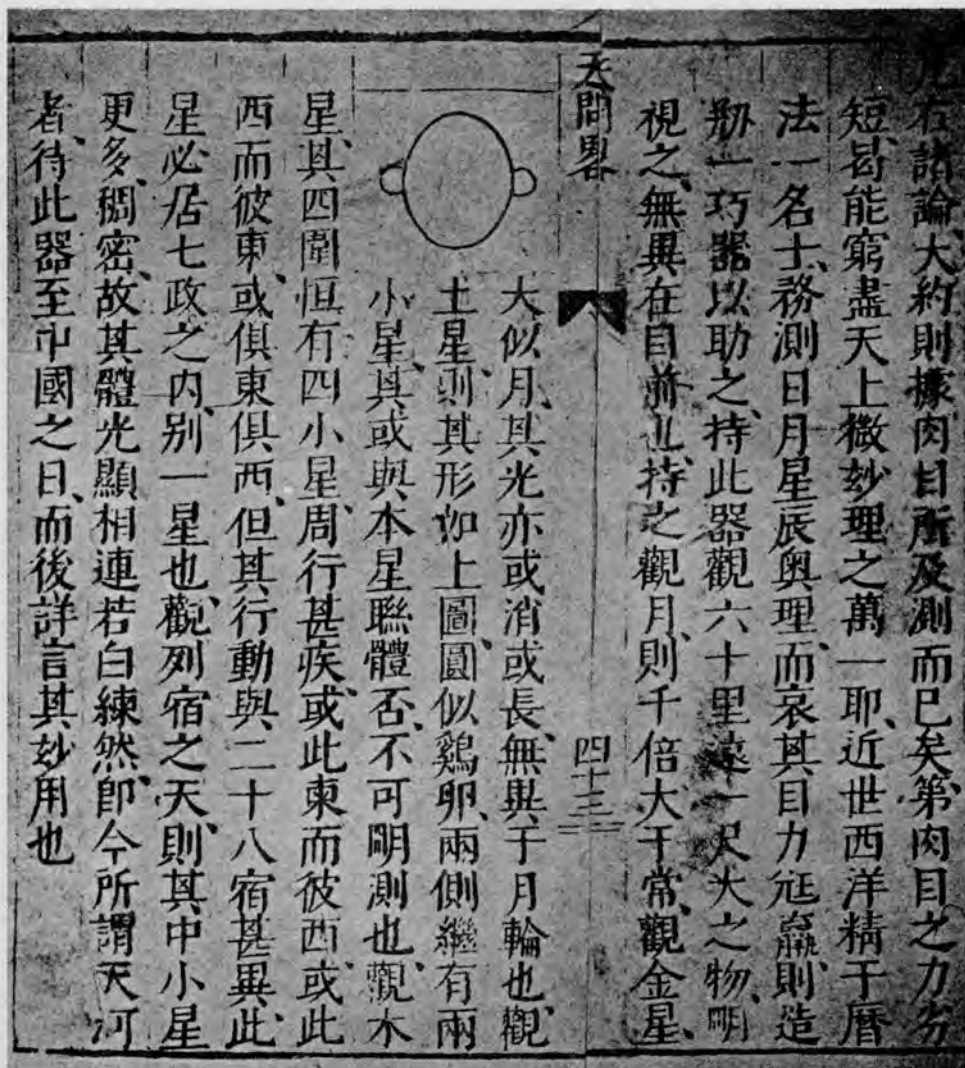 凡右諸論、大約則據肉目所及測而已矣、第肉目之力劣
短、曷能窮盡天上微妙理之萬一耶、近世西洋精于曆
法一名士、務測日月星辰奧理、而哀其目力尫羸、則造
剏一巧器以助之、持此器觀六十里遠一尺大之物、明
視之、無異在目前也、持之觀月、則千倍大于常、觀金星、
天問畧
四十三
大似月、其光亦或消或長、無異于月輪也、觀
土星、則其形如上圖、圓似鷄卵、兩側繼有兩
小星、其或與本星聯體否、不可明測也、觀木
星、其四圍恒有四小星、周行甚疾、或此東而彼西、或此
西而彼東、或俱東俱西、但其行動與二十八宿甚異、此
星必居七政之内、別一星也、觀列宿之天、則其中小星
更多、稠密、故其體光顯相連若白練然、卽今所謂天河
者、待此器至中國之日、而後詳言其妙用也